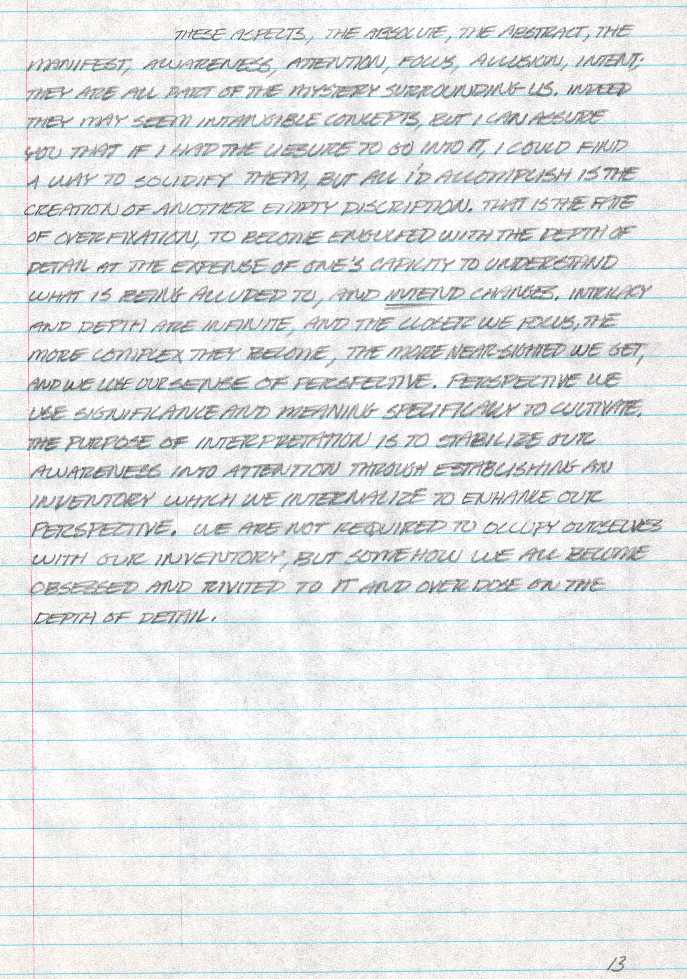 THESE ASPECTS, THE ABSOLUTE, THE ABSTRACT, THE
MANIFEST, AWARENESS, ATTENTION, FOCUS, ALLUSION, INTENT;
THEY ARE ALL PART OF THE MYSTERY SURROUNDING US. INDEED
THEY MAY SEEM INTANGIBLE CONCEPTS, BUT I CAN ASSURE
YOU THAT IF I HAD THE LIESURE TO GO INTO IT, I COULD FIND
A WAY TO SOLIDIFY THEM, BUT ALL I'D ACCOMPLISH IS THE
CREATION OF ANOTHER EMPTY DISCRIPTION. THAT IS THE FATE
OF OVER FIXATION, TO BECOME ENGULFED WITH THE DEPTH OF
DETAIL AT THE EXPENSE OF ONE'S CAPICITY TO UNDERSTAND
WHAT IS BEING ALLUDED TO, AND INTEND CHANGES. INTRICACY
AND DEPTH ARE INFINITE, AND THE CLOSER WE FOCUS, THE
MORE COMPLEX THEY BECOME, THE MORE NEAR-SIGHTED WE GET,
AND WE LOSE OUR SENSE OF PERSPECTIVE. PERSPECTIVE WE
USE SIGNIFICANCE AND MEANING SPECIFICALLY TO CULTIVATE.
THE PURPOSE OF INTERPRETATION IS TO STABILIZE OUR
AWARENESS INTO ATTENTION THROUGH ESTABLISHING AN
INVENTORY WHICH WE INTERNALIZE TO ENHANCE OUR
PERSPECTIVE. WE ARE NOT REQUIRED TO OCCUPY OURSELVES
WITH OUR INVENTORY, BUT SOMEHOW WE ALL BECOME
OBSESSED AND RIVITED TO IT AND OVER DOSE ON THE
DEPTH OF DETAIL.
13